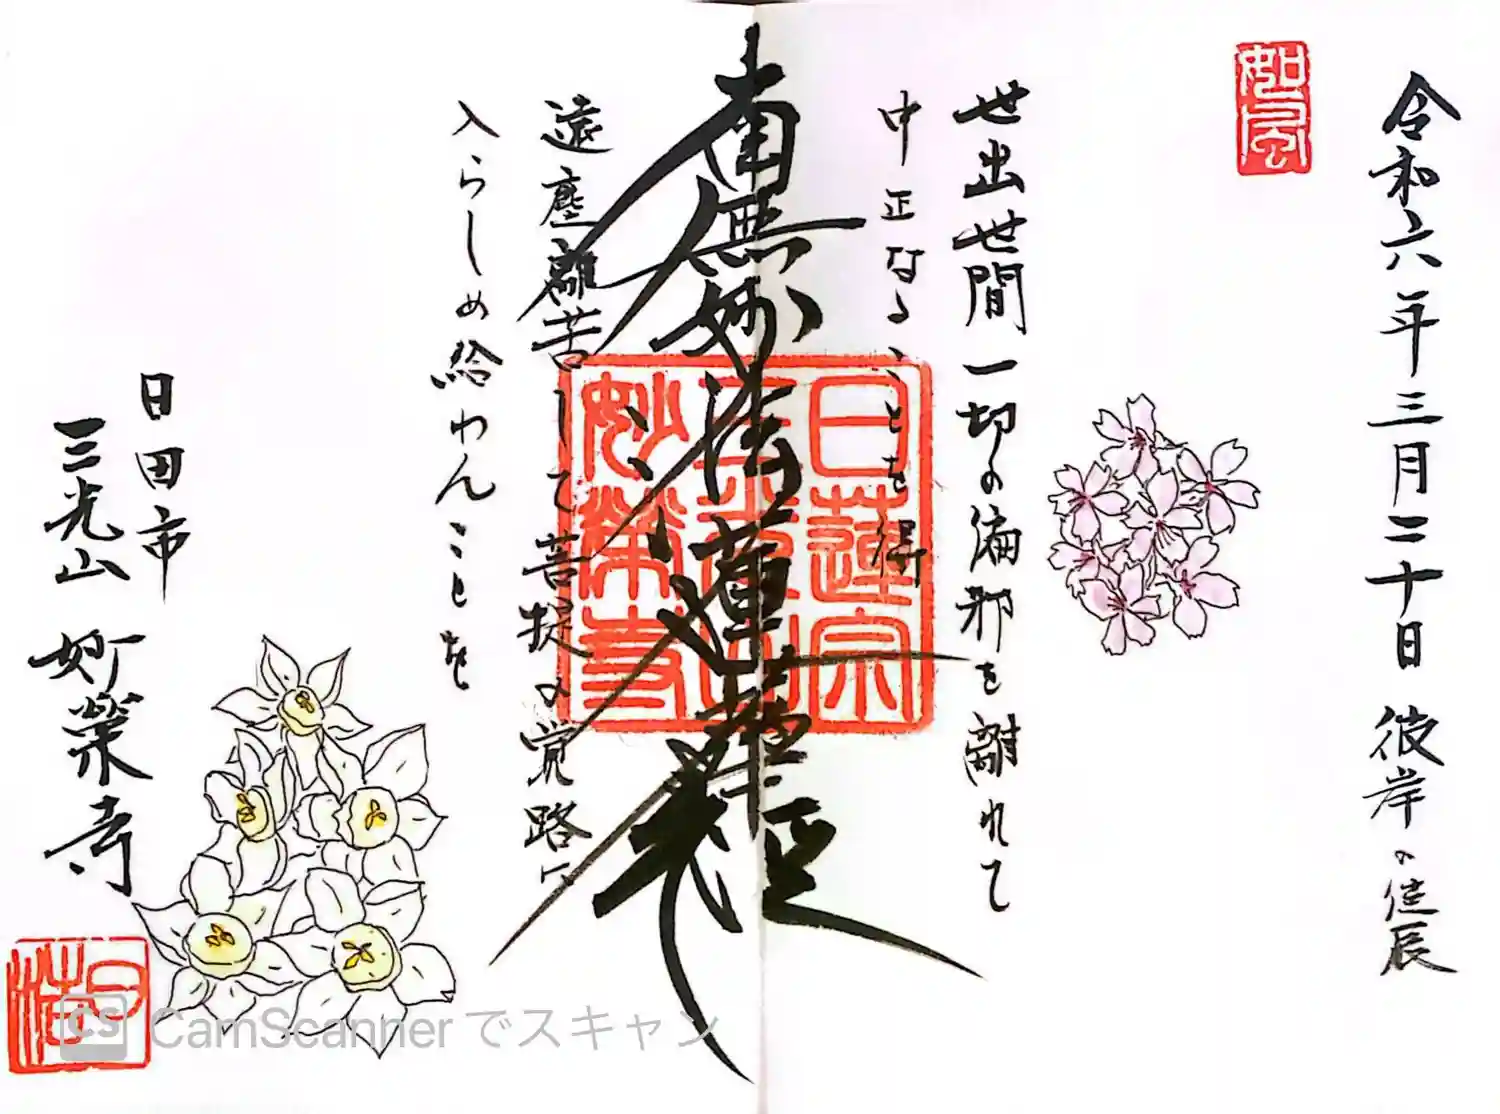 令和六年三月二十日 彼岸の佳辰
世出世間一切の偏邪を離れて
中正なることを得
南無妙法蓮華経
日蓮宗
三光山
妙榮寺
遠塵離苦して菩提の覚路に
入らしめ給わんことを
日田市
三光山 妙榮寺
CS CamScannerでスキャン